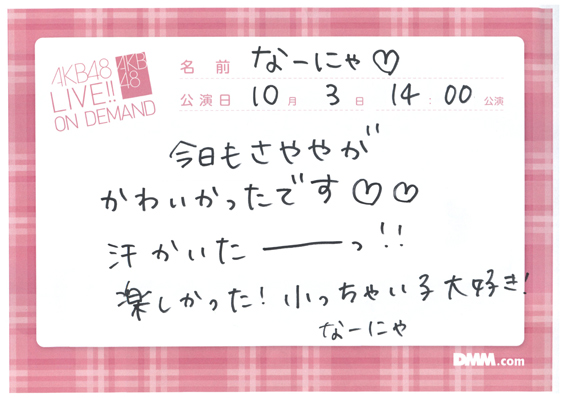 AKB48
LIVE!!
ON DEMAND
AKB
48
名前 なーにゃ♡
公演日 10月 3日 14:00公演
今日もさややが
かわいかったです♡♡
汗かいたーーっ!!
楽しかった!小っちゃい子大好き!
なーにゃ
DMM.com